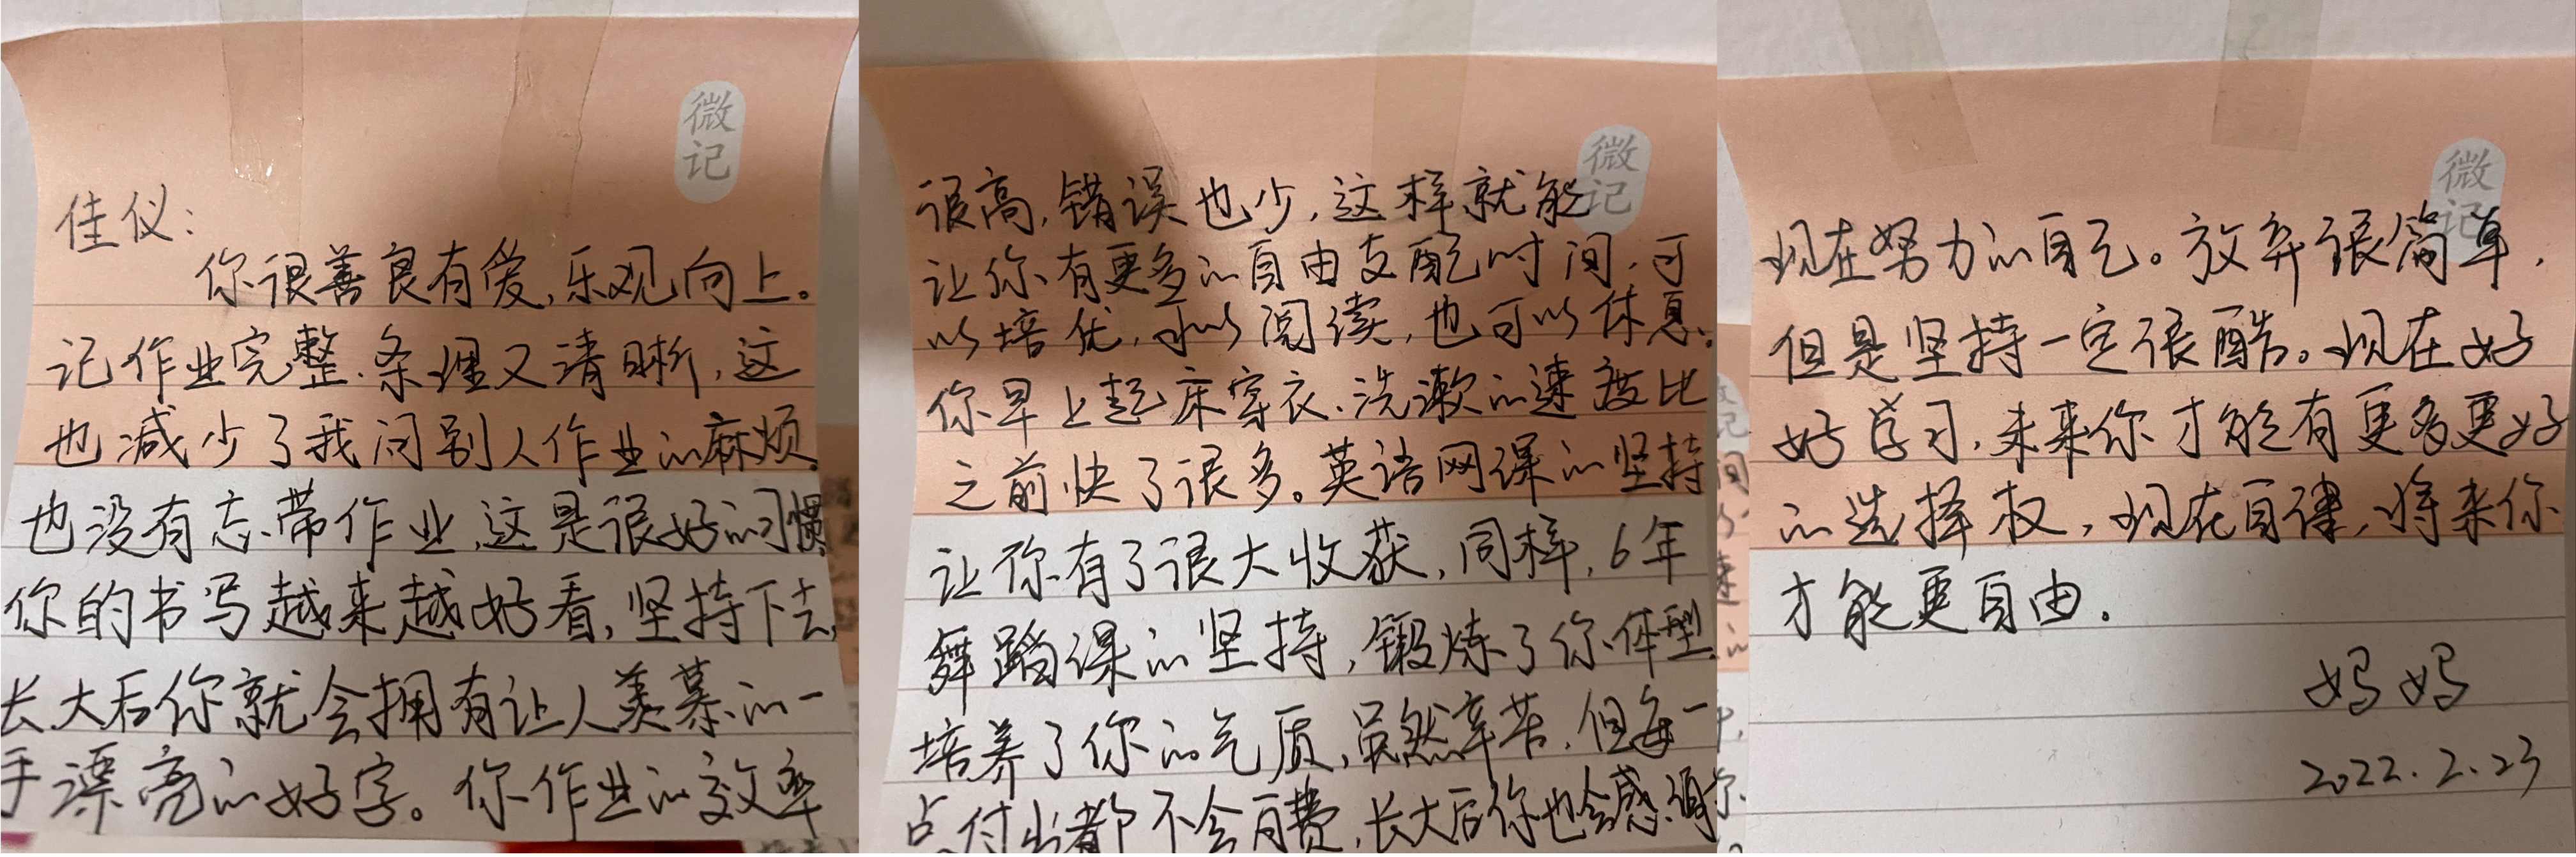 微
记
佳仪：
你很善良有爱，乐观向上。
记作业完整、条理又清晰，这
也减少了我问别人作业的麻烦。
也没有忘带作业，这是很好的习惯。
你的书写越来越好看，坚持下去，
长大后你就会拥有让人羡慕的一
手漂亮的好字。你作业的效率
微
记
很高，错误也少，这样就能
让你有更多的自由支配时间，可
以培优，可以阅读，也可以休息。
你早上起床穿衣、洗漱的速度比
之前快了很多。英语网课的坚持
让你有了很大收获，同样，6年
舞蹈课的坚持，锻炼了你体型
培养了你的气质，虽然辛苦，但每一
点付出都不会白费，长大后你也会感谢
微
记
现在努力的自己。放弃很简单，
但是坚持一定很酷。现在好
好学习，未来你才能有更多更好
的选择权，现在自律，将来你
才能更自由。
妈妈
2022.2.23